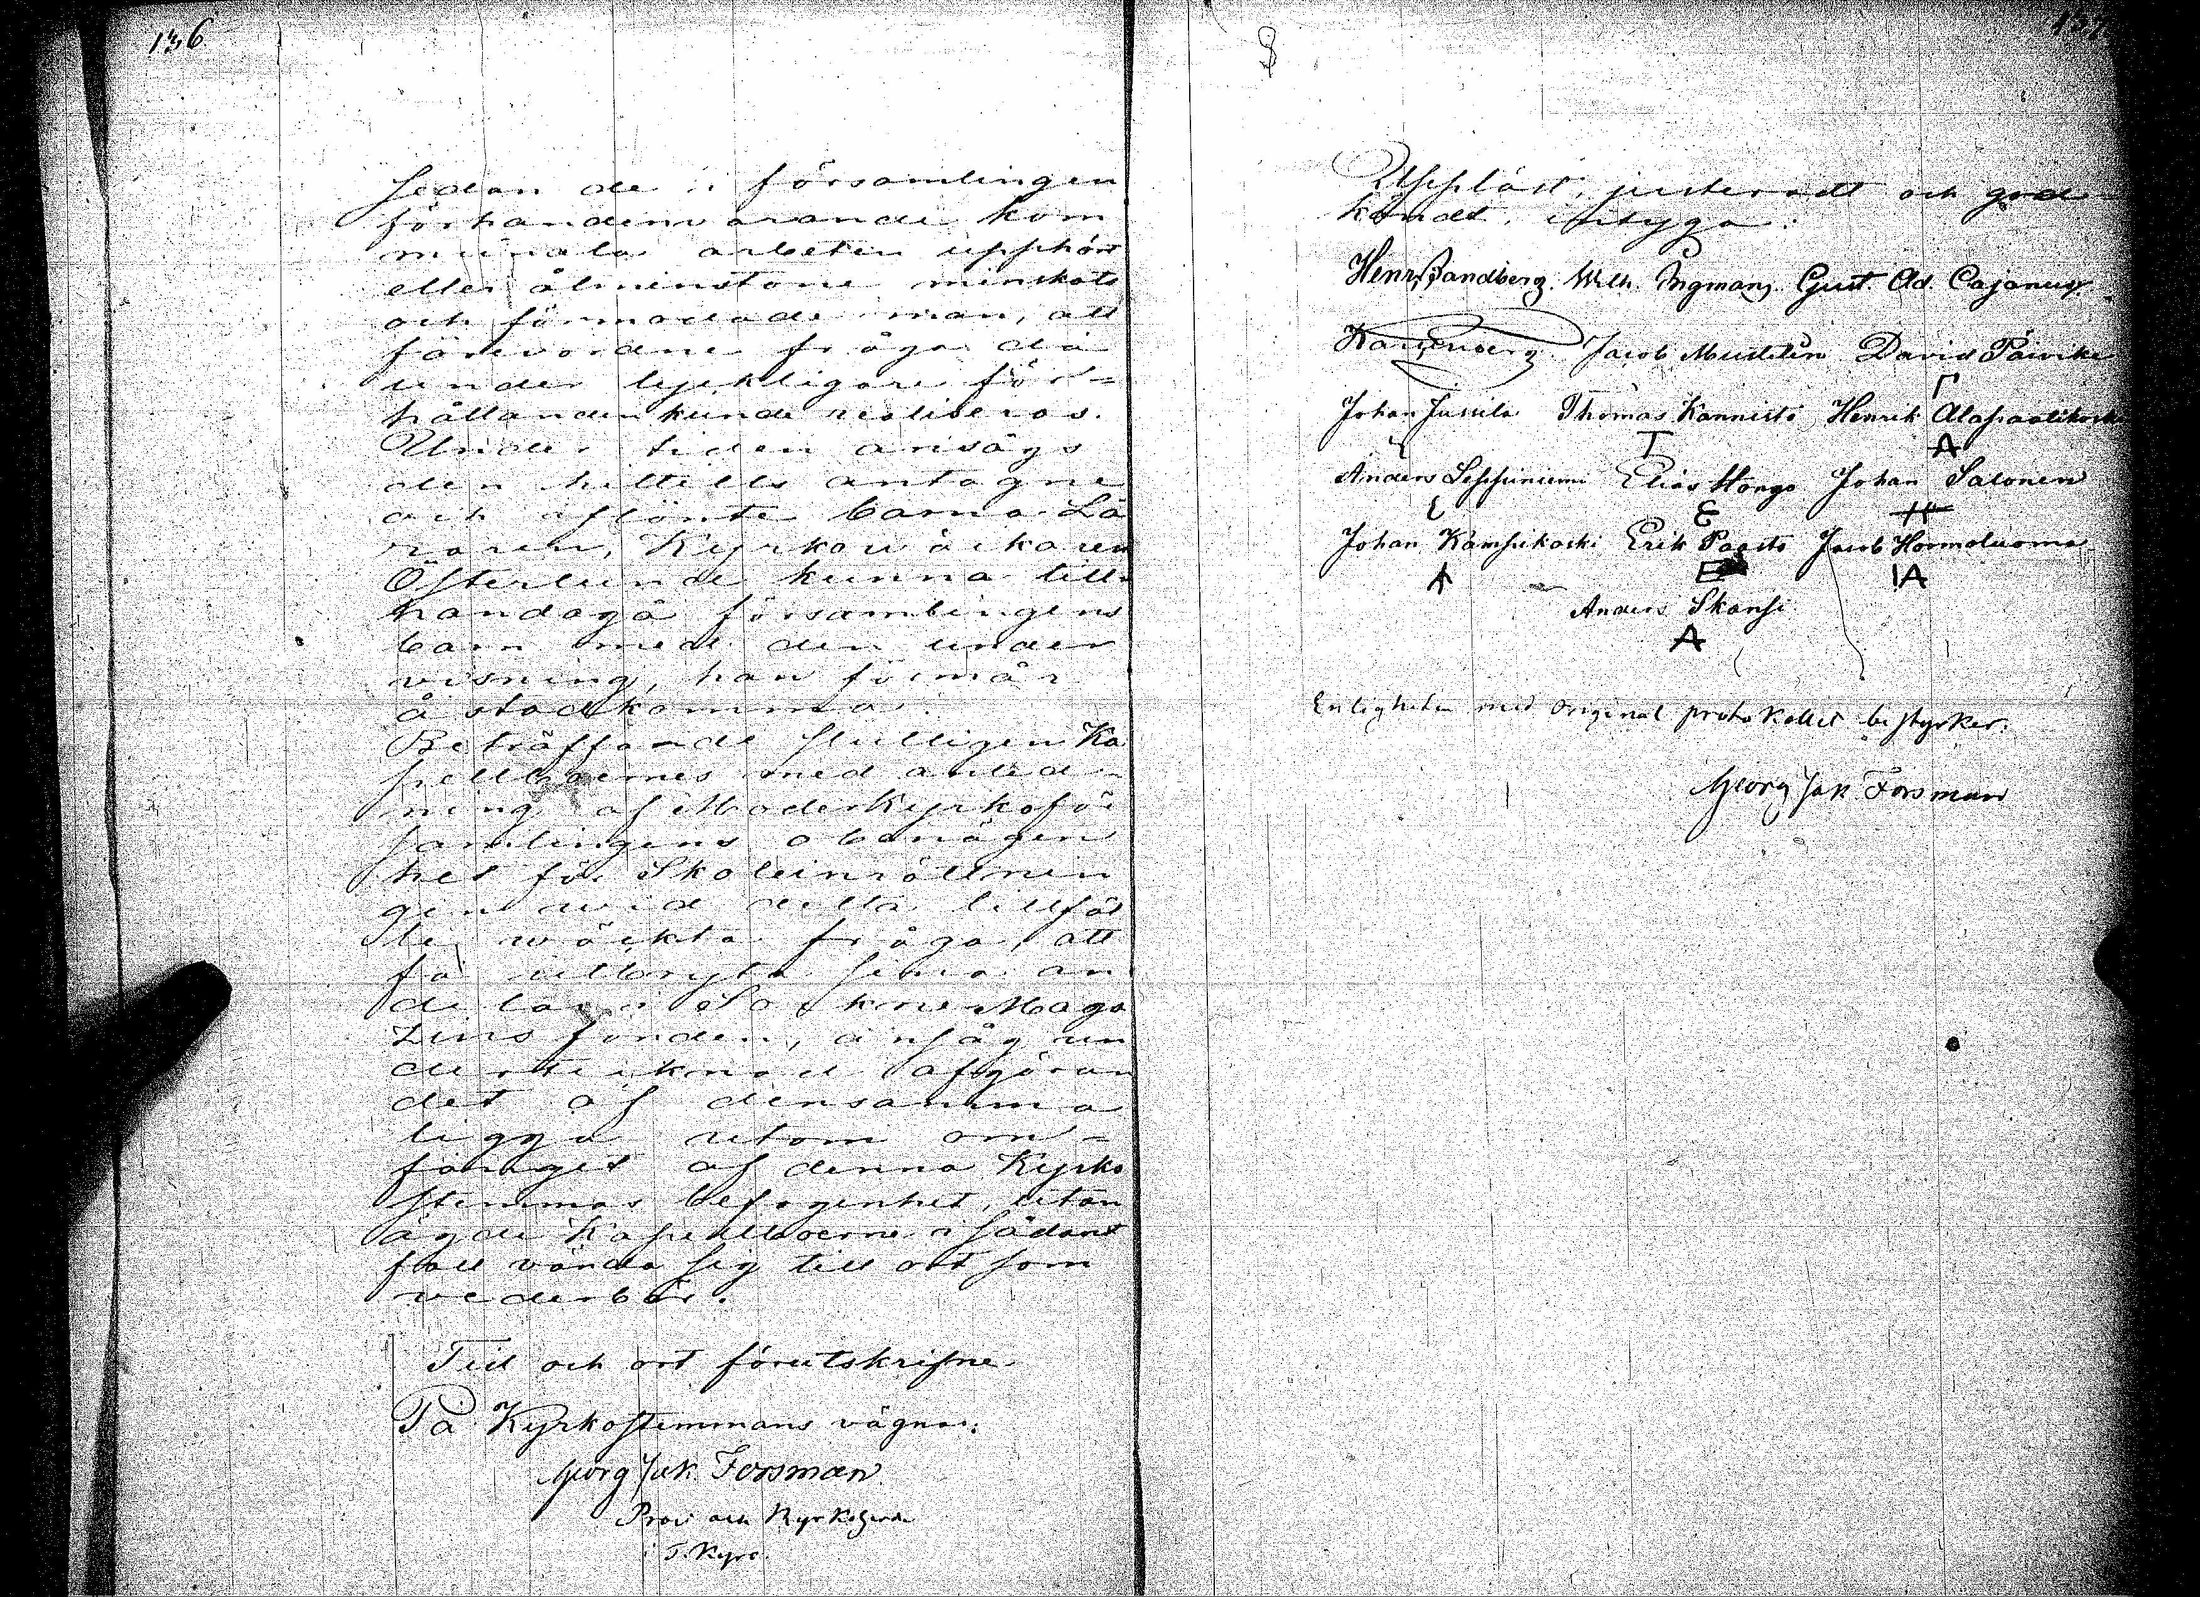 136
sedan de i församlingen
förhandenvarande kom
munala arbeten upphört
eller åtminstone minskats
och förmodade man, att
förevordne fråga då
under lyckligare för-
hållanden kunde realiseras.
Under tiden ansågs
den hittills antagne
och aflönte barna Lä
raren, Kyrkowäktaren
Österlund kunna till
handagå församlingens
barn med den under
visning, han förmår
åstadkomma.
Beträffande slutligen Ka
pellboernes med anled-
ning af Moderkyrkoför
samlingens obenägen
het för Skoleinrättnin
gen wid detta tillfäl
le wäckta fråga, att
få utbryta sina an
delar i Sockne Maga
zins fonden, ansåg un
dertecknad afgöran
det af densamma
ligga utom om-
fånget af denna Kyrko
stemmas befogenhet, utan
ägde Kapellboerne i sådant
fall vända sig till ort som
wederbör.
Tid och ort förutskrifne
På Kyrkostemmans vägnar:
Georg Jak. Forsman
Prov och Kyrkoherde
i St. Kyro.
137
§
Uppläst, justeradt och god
kändt, intyga:
Henr. Sandberg. Wilh. Ingman. Gust. Ad. Cajanus.
Jacob Muddén David Päivike
Johan Jussila Thomas Kannisto Henrik Alapaalikoski
T A
Anders Seppiniemi Elias Hongo Johan Salonen
E H
Johan Kampikoski Erik Paasto Jacob Hoormaluoma
E IA
Anders Skansi
A
Enligheten med original protokollet bestyrker:
Georg Jak. Forsman